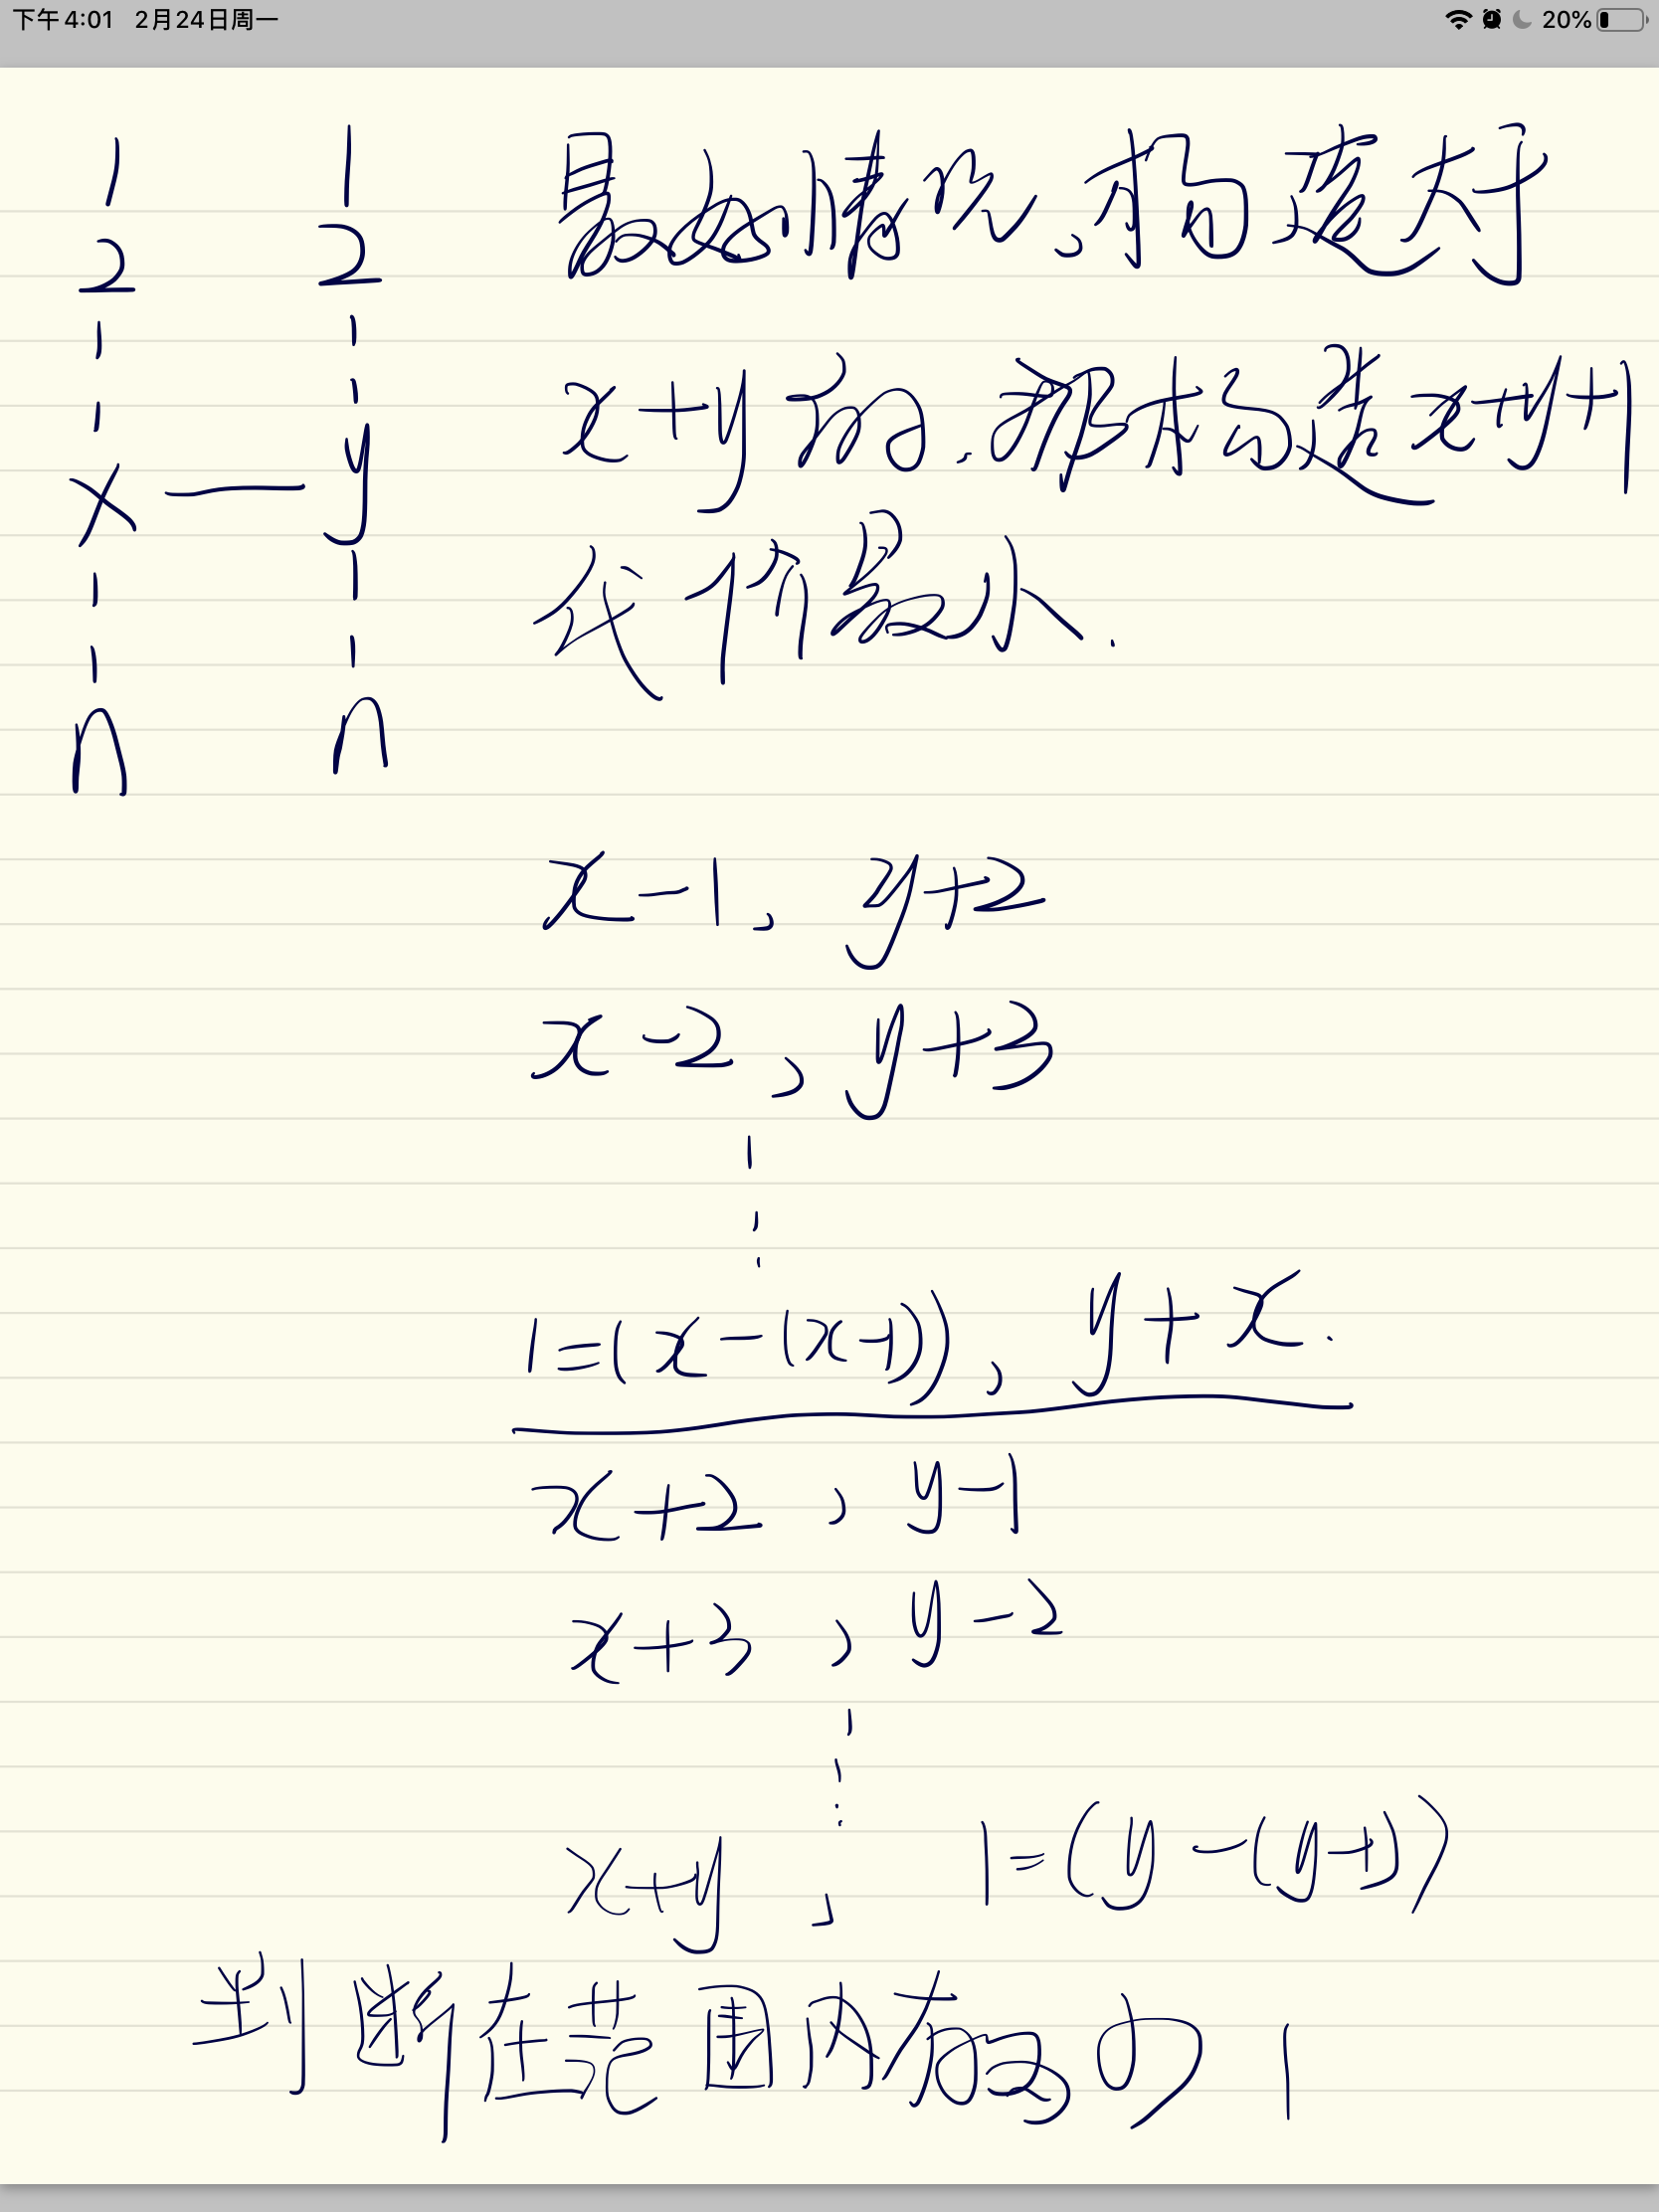 下午4:01 2月24日周一
20%
1 1
2 2
x — y
n n
最好情况,构造大于
x+y的.那构造x+y+1
代价最小.
x-1, y+2
x-2, y+3
1=(x-(x-1)), y+x.
x+2, y-1
x+3, y-2
x+y, 1=(y-(y-1))
判断在范围内有